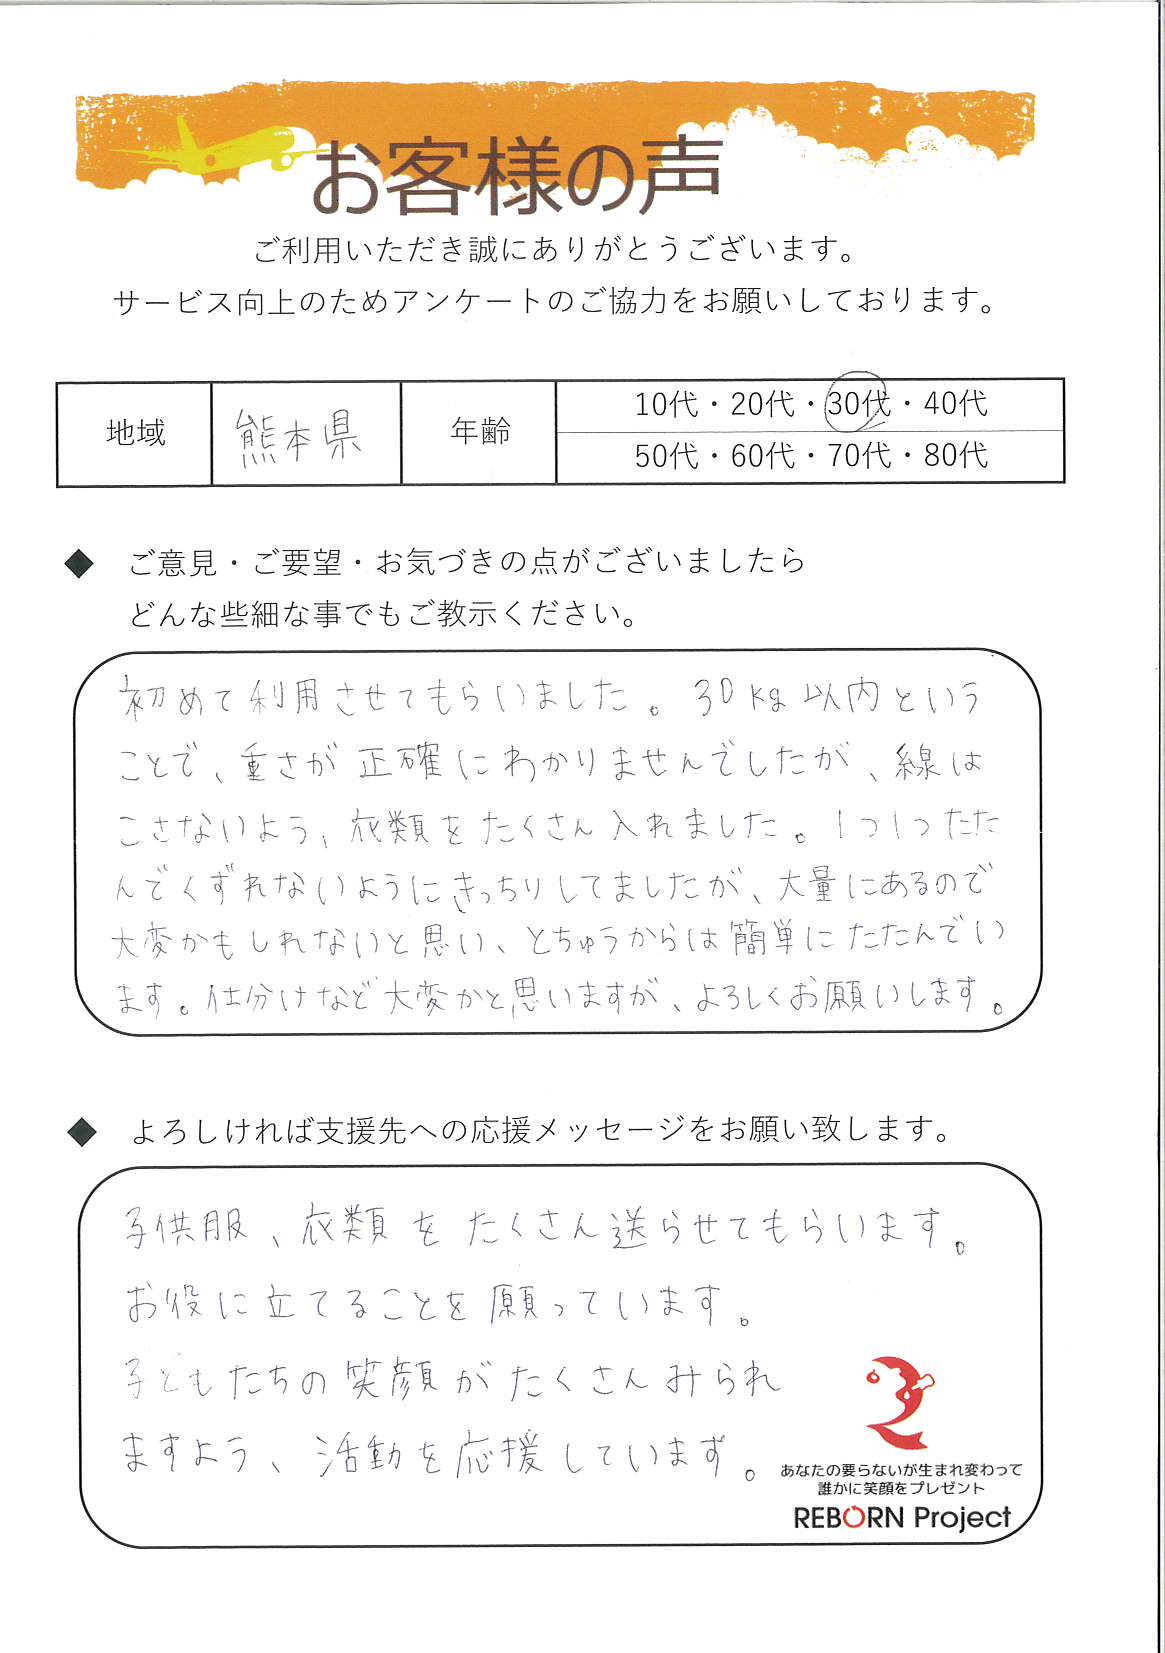 お客様の声
ご利用いただき誠にありがとうございます。
サービス向上のためアンケートのご協力をお願いしております。
地域 熊本県 年齢 10代・20代・30代・40代
50代・60代・70代・80代
◆ ご意見・ご要望・お気づきの点がございましたら
どんな些細な事でもご教示ください。
初めて利用させてもらいました。30kg以内という
ことで、重さが正確にわかりませんでしたが、線は
こさないよう、衣類をたくさん入れました。1つ1つたた
んでくずれないようにきっちりしてましたが、大量にあるので
大変かもしれないと思い、とちゅうからは簡単にたたんでい
ます。仕分けなど大変かと思いますが、よろしくお願いします。
◆ よろしければ支援先への応援メッセージをお願い致します。
子供服、衣類をたくさん送らせてもらいます。
お役に立てることを願っています。
子どもたちの笑顔がたくさんみられ
ますよう、活動を応援しています。
あなたの要らないが生まれ変わって
誰かに笑顔をプレゼント
REBORN Project